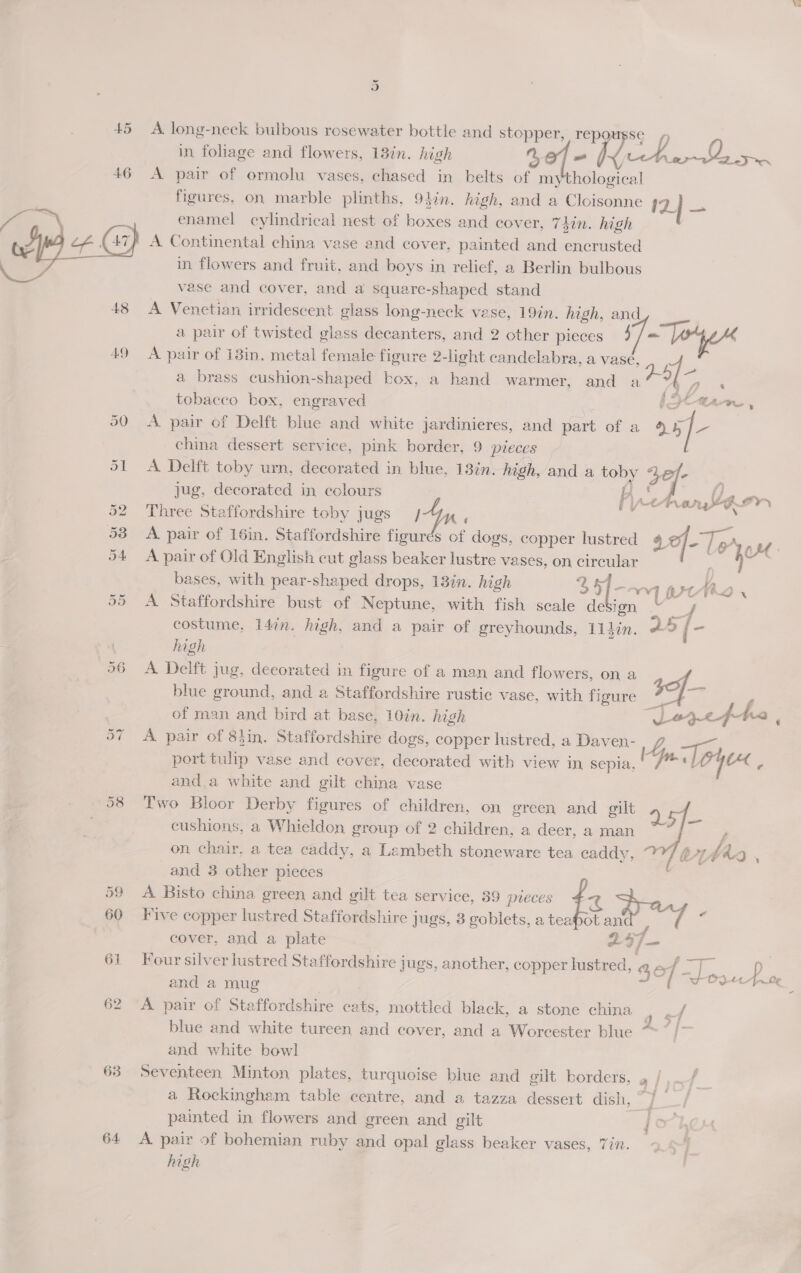 5
45 A long-neck bulbous rosewater bottle and stopper, repousse
in foliage and flowers, 13in. high 30/-
46 A pair of ormolu vases, chased in belts of mythological
figures, on marble plinths, 9½in. high, and a Cloisonne 12/-
enamel cylindrical nest of boxes and cover, 7½in. high
(47) A Continental china vase and cover, painted and encrusted
in flowers and fruit, and boys in relief, a Berlin bulbous
vase and cover, and a square-shaped stand
48 A Venetian irridescent glass long-neck vase, 19in. high, and
a pair of twisted glass decanters, and 2 other pieces
49 A pair of 13in. metal female figure 2-light candelabra, a vase,
a brass cushion-shaped box, a hand warmer, and a 25/-
tobacco box, engraved
50 A pair of Delft blue and white jardinieres, and part of a 25/-
china dessert service, pink border, 9 pieces
51 A Delft toby urn, decorated in blue, 13in. high, and a toby 30/-
jug, decorated in colours
52 Three Staffordshire toby jugs
53 A pair of 16in. Staffordshire figures of dogs, copper lustred
54 A pair of Old English cut glass beaker lustre vases, on circular
bases, with pear-shaped drops, 13in. high 35/-
55 A Staffordshire bust of Neptune, with fish scale design
costume, 14in. high, and a pair of greyhounds, 11½in. 25/-
high
56 A Delft jug, decorated in figure of a man and flowers, on a
blue ground, and a Staffordshire rustic vase, with figure 30/-
of man and bird at base, 10in. high
57 A pair of 8½in. Staffordshire dogs, copper lustred, a Daven-
port tulip vase and cover, decorated with view in sepia,
and a white and gilt china vase
58 Two Bloor Derby figures of children, on green and gilt
cushions, a Whieldon group of 2 children, a deer, a man 25/-
on chair, a tea caddy, a Lambeth stoneware tea caddy,
and 3 other pieces
59 A Bisto china green and gilt tea service, 39 pieces
60 Five copper lustred Staffordshire jugs, 3 goblets, a teapot and
cover, and a plate 25/-
61 Four silver lustred Staffordshire jugs, another, copper lustred,
and a mug
62 A pair of Staffordshire cats, mottled black, a stone china
blue and white tureen and cover, and a Worcester blue
and white bowl
63 Seventeen Minton plates, turquoise blue and gilt borders,
a Rockingham table centre, and a tazza dessert dish,
painted in flowers and green and gilt
64 A pair of bohemian ruby and opal glass beaker vases, 7in.
high